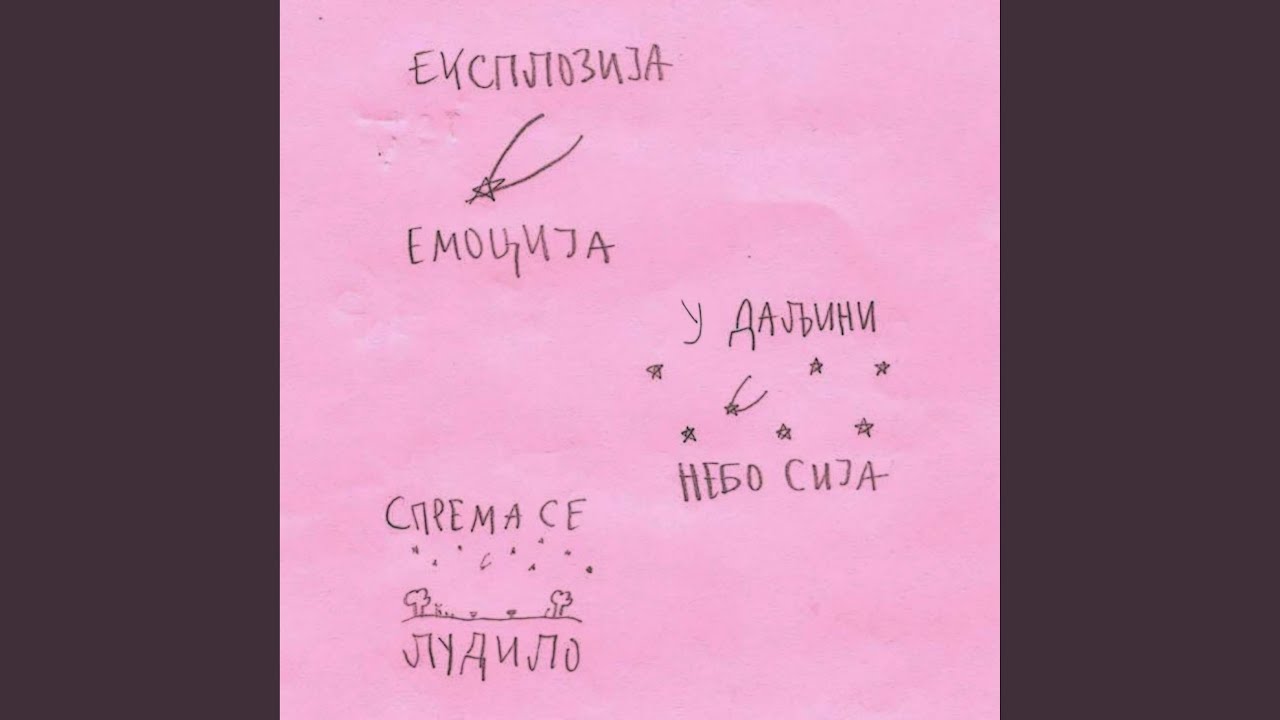 ЕКСПЛОЗИЈА
ЕМОЦИЈА
У ДАЉИНИ
НЕБО СИЈА
СПРЕМА СЕ
ЛУДИЛО